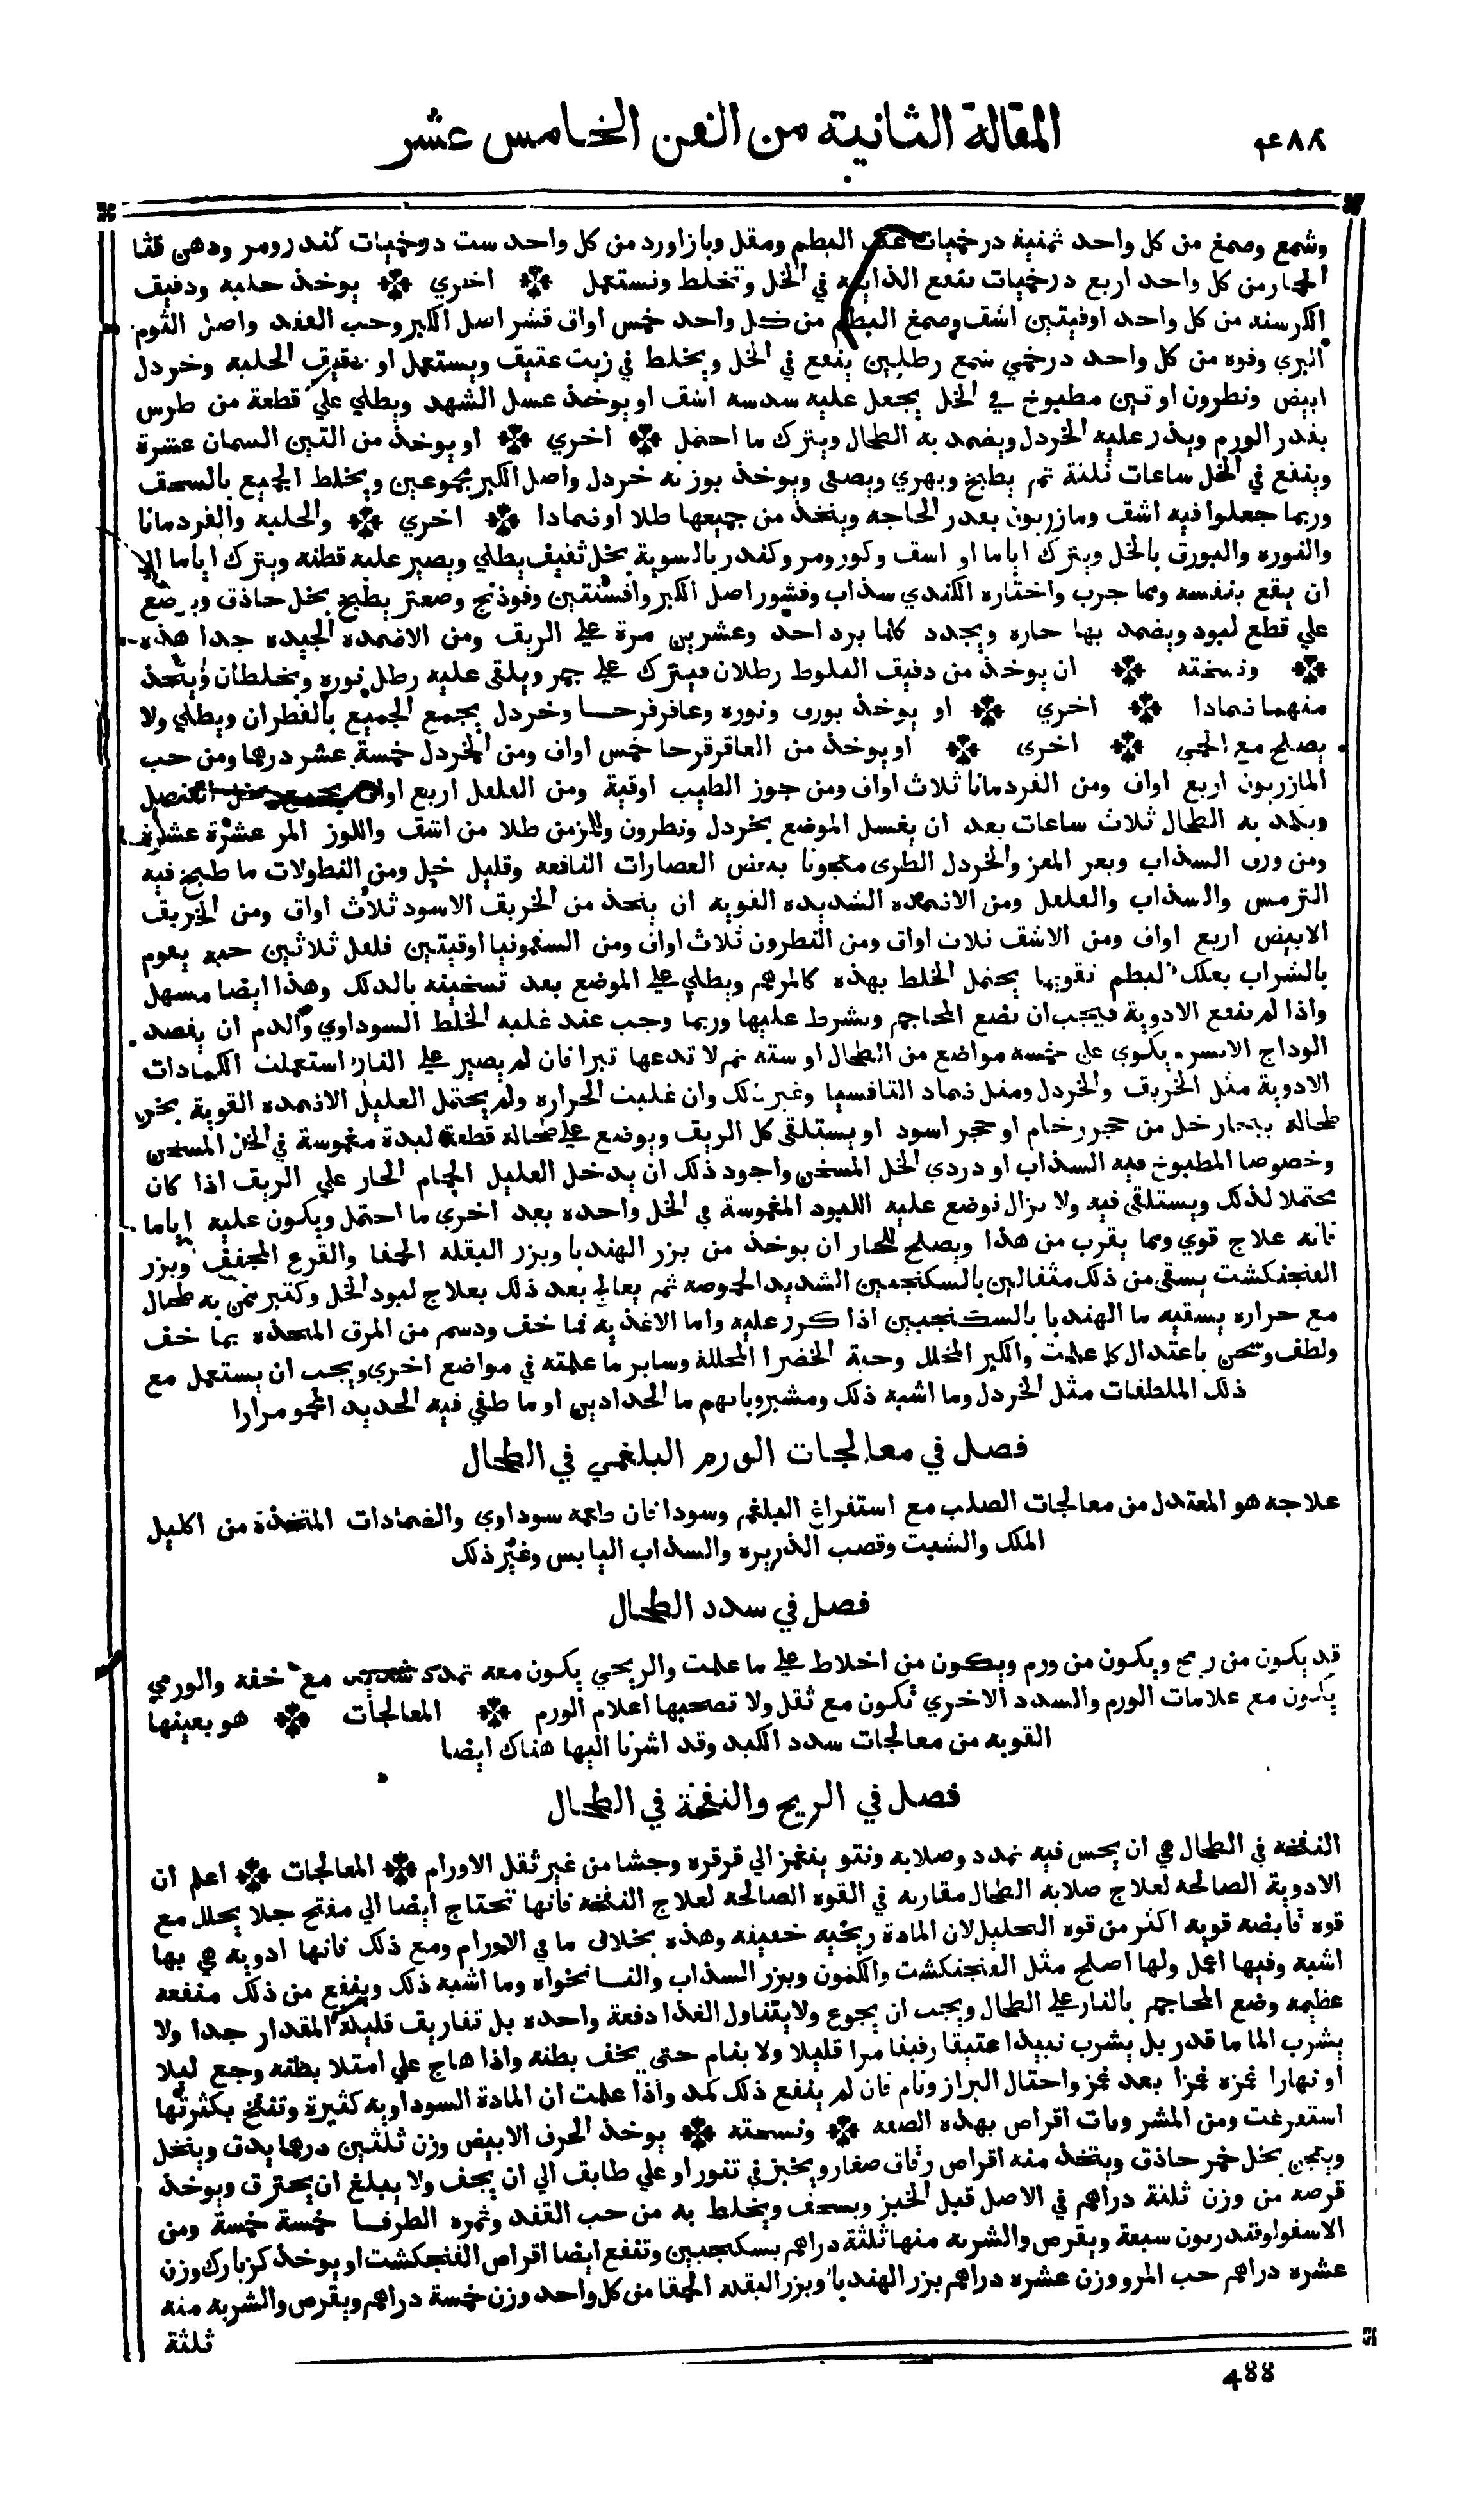 ٤٨٨
المقالة الثانية من الفن الخامس عشر
وشمع وصمغ من كل واحد ثمنية درخميات علك البطم ومقل وبازاورد من كل واحد ست درخميات كندر ومر ودهن قثا
الحمار من كل واحد اربع درخميات ينقع الذايبه في الخل وتخلط وتستعمل اخري يوخذ حلبه ودقيق
الكرسنه من كل واحد اوقيتين اشق وصمغ البطم من كل واحد خمس اواق قشر اصل الكبر وحب الفقد واصل الثوم
البري وفوه من كل واحد درخمي شمع رطلين ينقع في الخل ويخلط في زيت عتيق ويستعمل او بدقيق الحلبه وخردل
ابيض ونطرون او تين مطبوخ في الخل يجعل عليه سدسه اشق او يوخذ عسل الشهد ويطلي علي قطعة من طرس
بقدر الورم ويذر عليه الخردل ويضمد به الطحال ويترك ما احتمل اخري او يوخذ من التين السمان عشرة
وينقع في الخل ساعات ثلثة ثم يطبخ ويهري ويصفي ويوخذ بوزنه خردل واصل الكبر مجموعين ويخلط الجميع بالسحق
وربما جعلوا فيه اشق ومازريون بقدر الحاجه ويتخذ من جميعها طلا او ضمادا اخري والحلبه والقردمانا
والنوره والبورق بالخل ويترك اياما او اسق وكور ومر وكندر بالسوية بخل ثقيف يطلي ويصير عليه قطنه ويترك اياما الي
ان يقع بنفسه ومما جرب واختاره الكندي سذاب وقشور اصل الكبر وافسنتين وفوذنج وصعتر يطبخ بخل حاذق ويوضع
علي قطع لبود ويضمد بها حاره ويجدد كلما برد احد وعشرين مرة علي الريق ومن الاضمده الجيده جدا هذه
ونسخته ان يوخذ من دقيق البلوط رطلان فيترك علي جمر ويلقي عليه رطل نوره ويخلطان ويتخذ
منهما ضمادا اخري او يوخذ بورق ونوره وعاقرقرحا وخردل يجمع الجميع بالقطران ويطلي ولا
يصلح مع الحمي اخري او يوخذ من العاقرقرحا خمس اواق ومن الخردل خمسة عشر درهما ومن حب
المازريون اربع اواق ومن القردمانا ثلاث اواق ومن جوز الطيب اوقية ومن الفلفل اربع اواق يجمع بخل العنصل
ويكمد به الطحال ثلاث ساعات بعد ان يغسل الموضع بخردل ونطرون وللمزمن طلا من اشق واللوز المر عشرة عشرة
ومن ورق السذاب وبعر المعز والخردل الطري معجونا ببعض العصارات النافعه وقليل خل ومن النطولات ما طبخ فيه
الترمس والسذاب والفلفل ومن الاضمده الشديده القويه ان يتخذ من الخربق الاسود ثلاث اواق ومن الخربق
الابيض اربع اواق ومن الاشق ثلاث اواق ومن النطرون ثلاث اواق ومن السقمونيا اوقيتين فلفل ثلاثين حبه يقوم
بالشراب بعلك البطم تقويما يحتمل الخلط بهذه كالمرهم ويطلي علي الموضع بعد تسخينه بالدلك وهذا ايضا مسهل
واذا لم تنفع الادوية فيجب ان تضع المحاجم وتشرط عليها وربما وجب عند غلبه الخلط السوداوي والدم ان يفصد
الوداج الايسر ويكوي علي خمسه مواضع من الطحال او سته ثم لا تدعها تبرا فان لم يصبر علي النار استعملت الكمادات
الادوية مثل الخربق والخردل ومثل ضماد الثافسيا وغير ذلك وان غلبت الحراره ولم يحتمل العليل الاضمده القوية بخر
طحاله ببخار خل من حجر رخام او حجر اسود او يستلقي كل الريق ويوضع علي طحاله قطعة لبدة مغموسة في الخل المسخن
وخصوصا المطبوخ فيه السذاب او دردي الخل المسخن واجود ذلك ان يدخل العليل الحمام الحار علي الريق اذا كان
محتملا لذلك ويستلقي فيه ولا يزال توضع عليه اللبود المغموسة في الخل واحده بعد اخري ما احتمل ويكون عليه اياما
فانه علاج قوي ومما يقرب من هذا ويصلح للحار ان يوخذ من بزر الهندبا وبزر البقله الحمقا والقرع المجفف وبزر
الفنجنكشت يسقي من ذلك مثقالين بالسكنجبين الشديد الحموضه ثم يعالج بعد ذلك بعلاج لبود الخل وكثير ممن به طحال
مع حراره يسقيه ما الهندبا بالسكنجبين اذا كرر عليه واما الاغذيه فما خف ودسم من المرق المتخذه بما خف
ولطف وسخن باعتدال كما علمت والكبر المخلل وحبة الخضرا المحللة وساير ما علمته في مواضع اخري ويجب ان يستعمل مع
ذلك الملطفات مثل الخردل وما اشبه ذلك ومشروباتهم ما الحدادين او ما طفي فيه الحديد المحمو مرارا
فصل في معالجات الورم البلغمي في الطحال
علاجه هو المعتدل من معالجات الصلب مع استفراغ البلغم وسودا فان طعمه سوداوي والضمادات المتخذة من اكليل
الملك والشبت وقصب الذريره والسذاب اليابس وغير ذلك
فصل في سدد الطحال
قد يكون من ريح ويكون من ورم ويكون من اخلاط علي ما علمت والريحي يكون معه تمدد شديد مع خفه والورمي
يكون مع علامات الورم والسدد الاخري تكون مع ثقل ولا تصحبها اعلام الورم المعالجات هو بعينها
القويه من معالجات سدد الكبد وقد اشرنا اليها هناك ايضا
فصل في الريح والنفخة في الطحال
النفخه في الطحال هي ان يحس فيه تمدد وصلابه ونتو ينغمز الي قرقره وجشا من غير ثقل الاورام المعالجات اعلم ان
الادوية الصالحه لعلاج صلابه الطحال مقاربه في القوه الصالحه لعلاج النفخه فانها تحتاج ايضا الي مفتح جلا يحلل مع
قوه قابضه قويه اكثر من قوه التحليل لان المادة ريحيه خفيفه وهذه بخلاف ما في الاورام ومع ذلك فانها ادويه هي بها
اشبه وفيها اعمل ولها اصلح مثل الفنجنكشت والكمون وبزر السذاب والنانخواه وما اشبه ذلك وينفع من ذلك منفعه
عظيمه وضع المحاجم بالنار علي الطحال ويجب ان يجوع ولا يتناول الغذا دفعة واحده بل تفاريق قليلة المقدار جدا ولا
يشرب الما ما قدر بل يشرب نبيذا عتيقا رقيقا مرا قليلا ولا ينام حتي يخف بطنه واذا هاج علي امتلا بطنه وجع ليلا
او نهارا غمزه غمزا بعد غمز واحتال البراز ونام فان لم ينفع ذلك كمد واذا علمت ان المادة السوداويه كثيرة وتنفخ بكثرتها
استفرغت ومن المشروبات اقراص بهذه الصفه ونسخته يوخذ الحرف الابيض وزن ثلثين درهما يدق وينخل
ويعجن بخل خمر حاذق ويتخذ منه اقراص رقاق صغار ويخبز في تنور او علي طابق الي ان يجف ولا يبلغ ان يحترق ويوخذ
قرصه من وزن ثلثة دراهم في الاصل قبل الخبز ويسحق ويخلط به من حب الفقد وثمره الطرفا خمسة خمسة ومن
الاسقولوقندريون سبعة ويقرص والشربه منها ثلثة دراهم بسكنجبين وتنفع ايضا اقراص الفنجكشت او يوخذ كزبارك وزن
عشره دراهم حب المرو وزن عشره دراهم بزر الهندبا وبزر البقله الحمقا من كل واحد وزن خمسة دراهم ويقرص والشربه منه
ثلثة
488